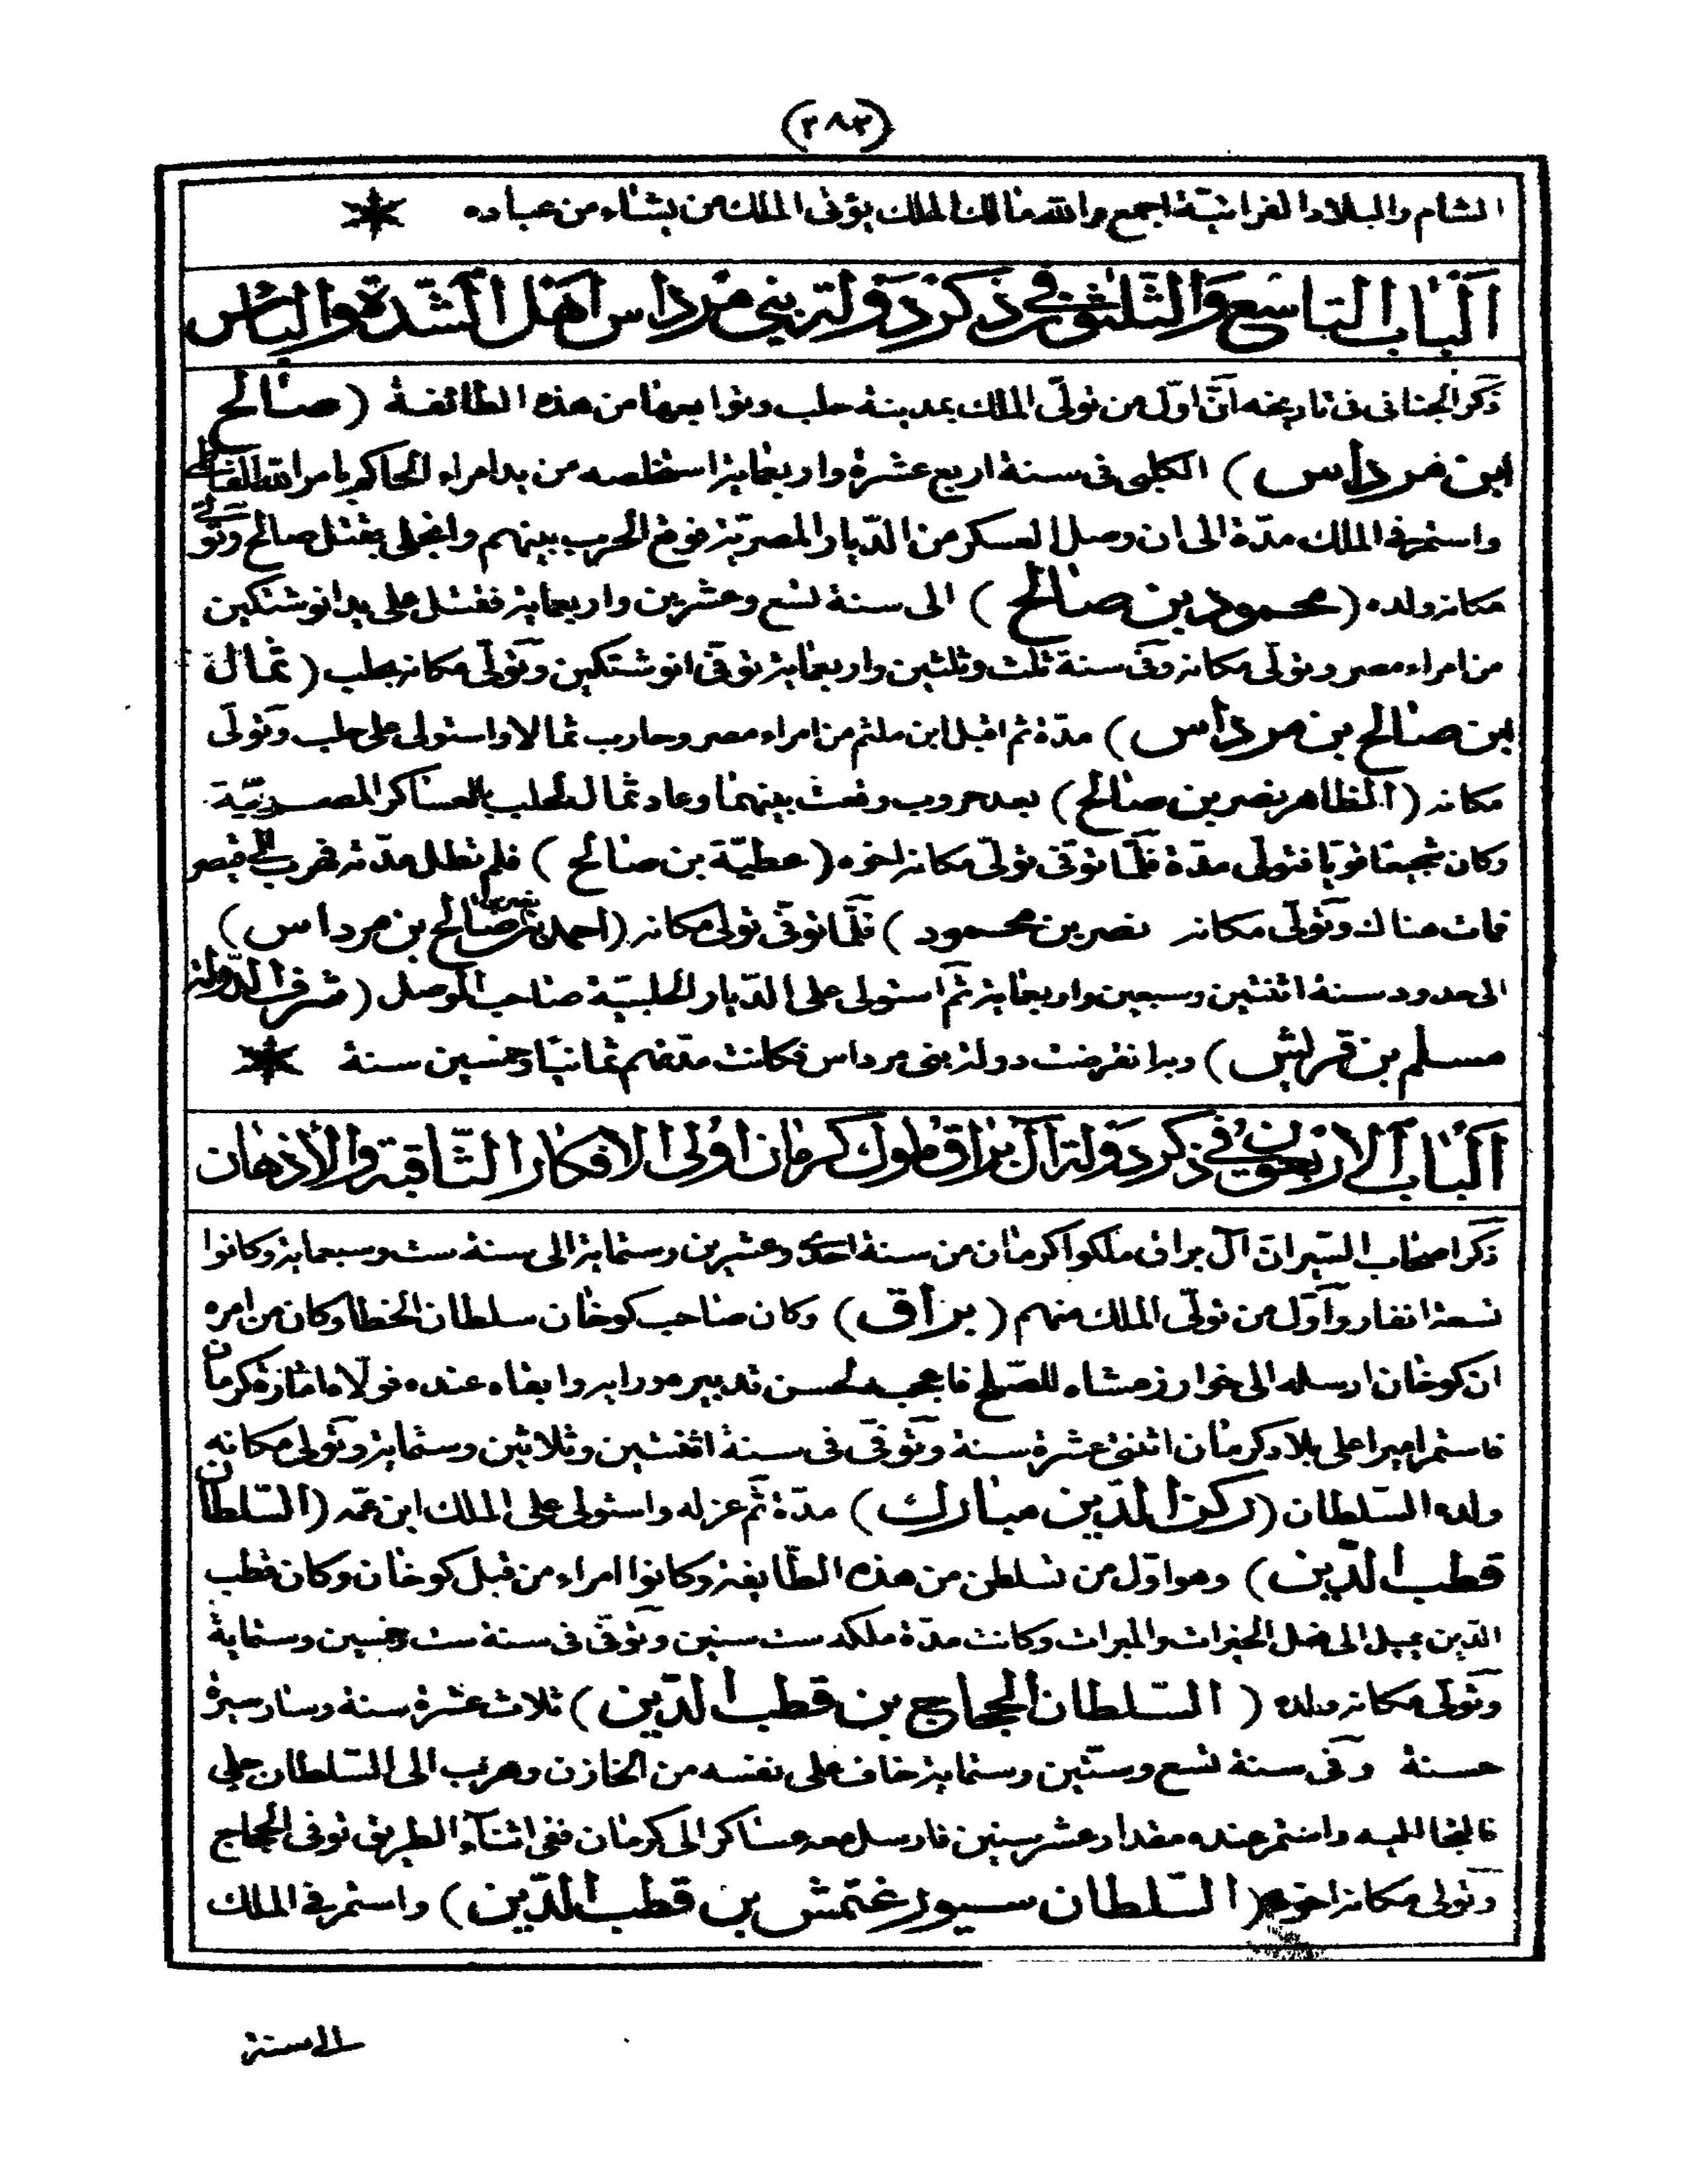 (٢٨٣)
الشام والبلاد الفراتية اجمع والله مالك الملك يؤتى الملك من يشاء من عباده
الباب التاسع والثلثون فى ذكر دولة بنى مرداس اهل الشدة والباس
ذكر الجنابى فى تاريخه انّ اوّل من تولّى الملك بمدينة حلب وتوابعها من هذه الطائفة (صالح
ابن مرداس) الكلبى فى سنة اربع عشرة واربعماية استخلصه من يد امراء الحاكم بامر الله الفاطمى
واستمر فى الملك مدّة الى ان وصل العسكر من الدّيار المصريّة فوقع الحرب بينهم وانجلى بقتل صالح وتولّى
مكانه ولده (محمود بن صالح) الى سنة تسع وعشرين واربعماية فقتل على يد انوشتكين
من امراء مصر وتولّى مكانه وفى سنة ثلث وثلثين واربعماية توفّى انوشتكين وتولّى مكانه بحلب (ثمال
ابن صالح بن مرداس) مدّة ثم اقبل ابن ملثم من امراء مصر وحارب ثمالا واستولى على حلب وتولّى
مكانه (الظاهر نصر بن صالح) بعد حروب وقعت بينهما وعاد ثمال لحلب بالعساكر المصريّة
وكان شجيعا قويا فتولى مدّة فلمّا توفّى تولّى مكانه اخوه (عطيّة بن صالح) فلم تطل مدّته فهرب الى قيصر
فمات هناك وتولّى مكانه نصر بن محمود) فلمّا توفّى تولى مكانه (احمد بن نصر بن صالح بن مرداس)
الى حدود سنة اثنتين وسبعين واربعماية ثمّ استولى على الدّيار الحلبيّة صاحب الموصل (شرف الدّولة
مسلم بن قريش) وبه انقرضت دولة بنى مرداس فكانت مدّتهم ثمانيا وخمسين سنة
الباب الاربعون فى ذكر دولة آل براق ملوك كرمان اولى الافكار الثّاقبة والاذهان
ذكر اصحاب السّير انّ آل براق ملكوا كرمان من سنة احدى وعشرين وستماية الى سنة ست وسبعماية وكانوا
تسعة انفار واوّل من تولّى الملك منهم (براق) وكان صاحب كوخان سلطان الخطا وكان من امره
ان كوخان ارسله الى خوارزمشاه للصّلح فاعجبه لحسن تدبيره ورايه وابقاه عنده فولّاه امارة كرمان
فاستمر اميرا على بلاد كرمان اثنتى عشرة سنة وتوفّى فى سنة اثنتين وثلاثين وستماية وتولى مكانه
ولده السّلطان (ركن الدّين مبارك) مدّة ثمّ عزله واستولى على الملك ابن عمّه (السّلطان
قطب الدّين) وهو اوّل من تسلطن من هذه الطّايفة وكانوا امراء من قبل كوخان وكان قطب
الدّين يميل الى فعل الخيرات والمبرات وكانت مدّة ملكه ست سنين وتوفّى فى سنة ست وخمسين وستماية
وتولّى مكانه ولده (السّلطان الحجاج بن قطب الدّين) ثلاث عشرة سنة وسار سيرة
حسنة وفى سنة تسع وستّين وستماية خاف على نفسه من الخازن وهرب الى السّلطان على
فالتجا اليه واستمر عنده مقدار عشر سنين فارسل معه عساكر الى كرمان ففى اثنآء الطريق توفى الحجاج
وتولى مكانه اخوه (السّلطان سيورغتمش بن قطب الدّين) واستمر فى الملك
الى سنة